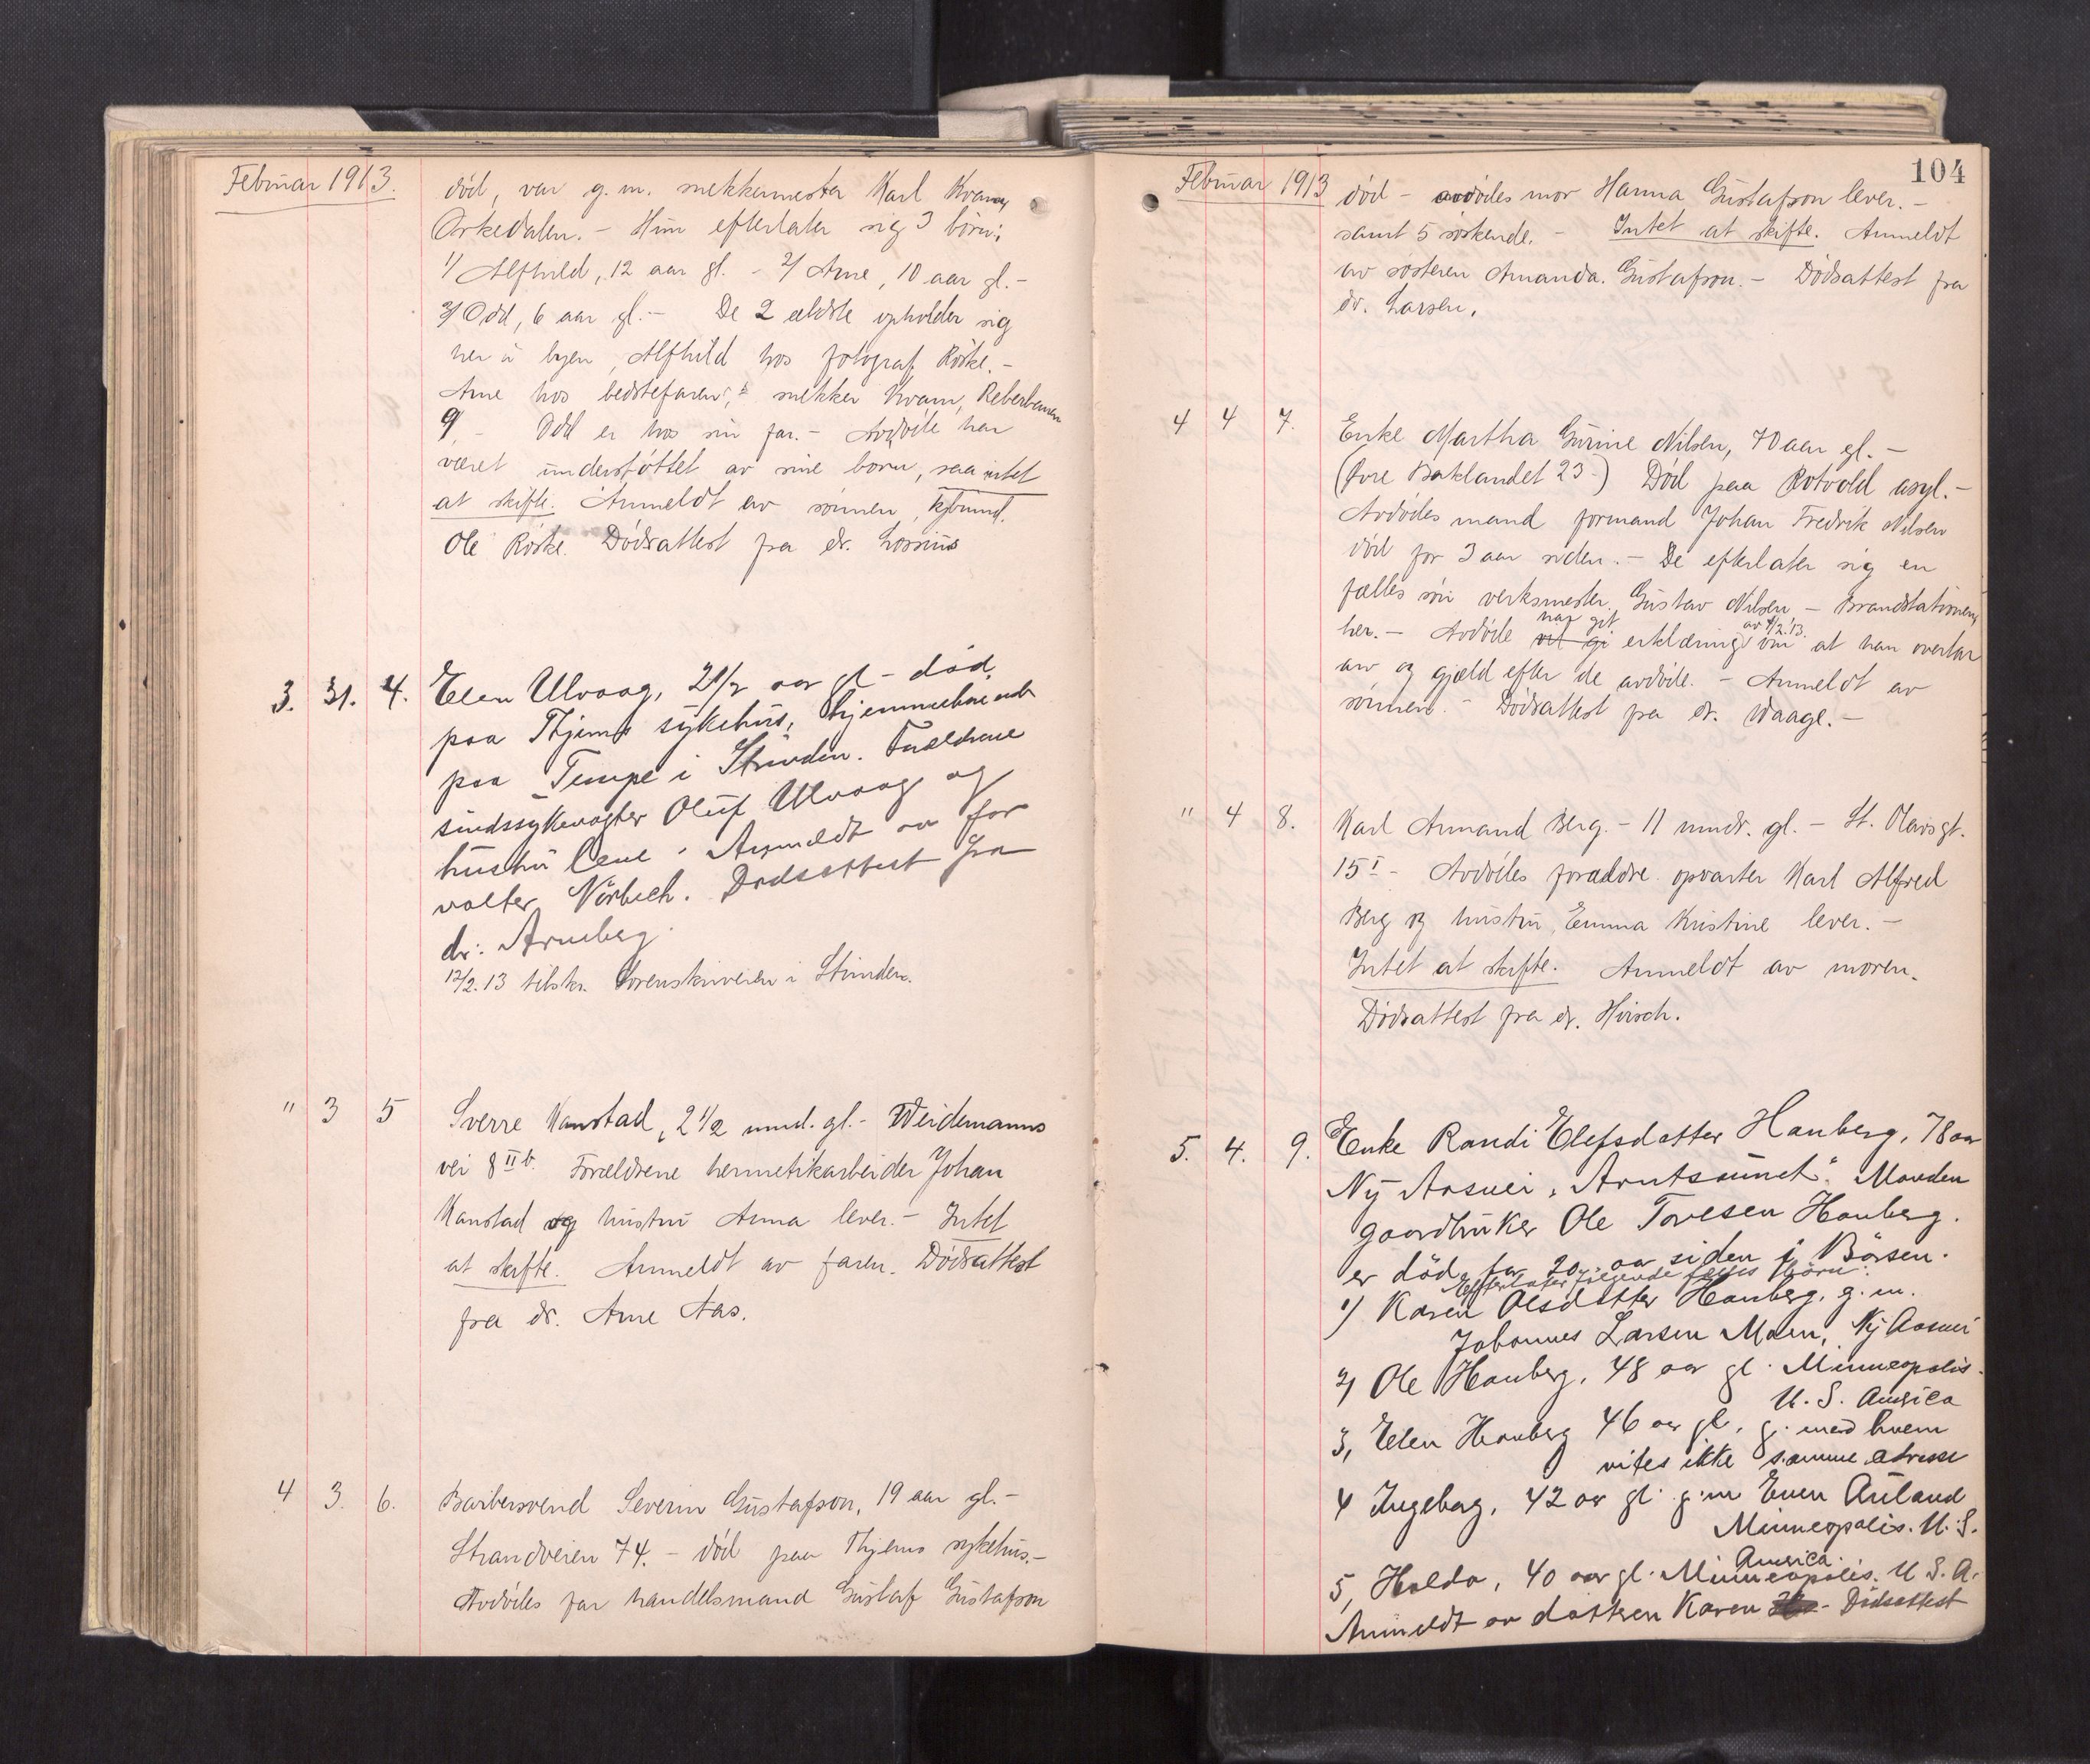 Februar 1913.
död, var g. m. snekkermester Karl Kvam,
Orkedalen. - Hun efterlater sig 3 börn:
1/ Alfhild, 12 aar gl. - 2/ Arne, 10 aar gl. -
3/ Odd, 6 aar gl. - De 2 ældste opholder sig
her i byen, Alfhild hos fotograf Röske. -
Arne hos bedstefaren, snekker Kvam, Reberbanen
9. - Odd er hos sin far. - Avdöde har
været understöttet av sine börn, saa intet
at skifte. Anmeldt av sönnen, kjöbmd.
Ole Röske. Dödsattest fra dr. Lossius
3. 31. 4. Elen Ulvaag, 2 1/2 aar gl - död
paa Thjems sykehus, hjemmehörende
paa Tempe i Strinden. Forældrene
sindssykevogter Oluf Ulvaag og
hustru Lene. Anmeldt av for
valter Nörbech. Dödsattest fra
dr. Arneberg.
12/2.13 tilskr. Sorenskriveren i Strinden.
" 3 5 Sverre Kanstad, 2 1/2 mnd. gl. - Weidemanns
vei 8 II b. Forældrene hermetikarbeider Johan
Kanstad og hustru Anna lever. - Intet
at skifte. Anmeldt av faren. Dödsattest
fra dr. Arne Aas.
4 3. 6. Barbersvend Severin Gustafson, 19 aar gl. -
Strandveien 74. - död paa Thjems sykehus. -
Avdödes far handelsmand Gustaf Gustafson
104
Februar 1913
död - avdödes mor Hanna Gustafson lever. -
samt 5 söskende. - Intet at skifte. Anmeldt
av sösteren Amanda Gustafson. - Dödsattest fra
dr. Larsen.
4 4 7. Enke Martha Gurine Nilsen, 70 aar gl. -
(Övre Baklandet 23 -) Död paa Rotvold asyl. -
Avdödes mand formand Johan Fredrik Nilsen
död for 3 aar siden. - De efterlater sig en
fælles sön verksmester Gustav Nilsen - Brandstationen
har git av 4/2.13.
her. - Avdöde vil gi erklæring om at han overtar
arv og gjæld efter de avdöde. - Anmeldt av
sönnen. - Dödsattest fra dr. Waage. -
" 4 8. Karl Armand Berg. - 11 mndr. gl. - St. Olavsgt.
15 I - Avdödes forældre opvarter Karl Alfred
Berg og hustru Emma Kristine lever. -
Intet at skifte. Anmeldt av moren.
Dödsattest fra dr. Hirsch.
5. 4. 9. Enke Randi Elefsdatter Hanberg, 78 aar
Ny Aasvei, "Arntsunet". Manden
gaardbruker Ole Toresen Hanberg.
er död for 20 aar siden i Börsen.
Efterlater fölgende fælles börn:
1) Karen Olsdatter Hanberg, g. m.
Johannes Larsen Moen, Ny Aasvei
2) Ole Hanberg, 48 aar gl. Minneapolis.
U. S. America
3, Elen Hanberg 46 aar gl. g. med hvem
vites ikke samme adresse
4 Ingeborg, 42 aar gl. g. m Even Auland
Minneapolis. U. S.
America.
5, Halda, 40 aar gl. Minneapolis. U. S. A.
Anmeldt av datteren Karen - Dödsattest